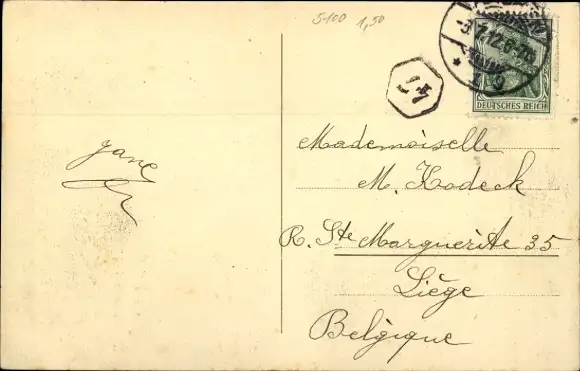 5-100 1,50
-3.7.12.6-7N
DEUTSCHES REICH
Jane
Mademoiselle
M. Kodeck
R. Ste Marguerite 35
Liège
Belgique